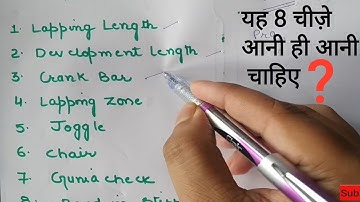 1. Lapping Length
2. Development Length
3. Crank Bar
4. Lapping Zone
5. Joggle
6. Chair
7. Gunia check
यह 8 चीज़े
आनी ही आनी
चाहिए❓
Sub